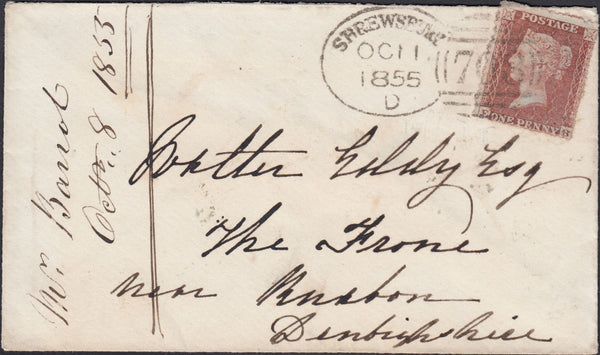 SHREWSBURY
OC 11
1855
D
POSTAGE
ONE PENNY
Mr. Barrot
Octr. 8 1855
Walter Eddy Esq
The Frone
near Ruabon
Denbighshire